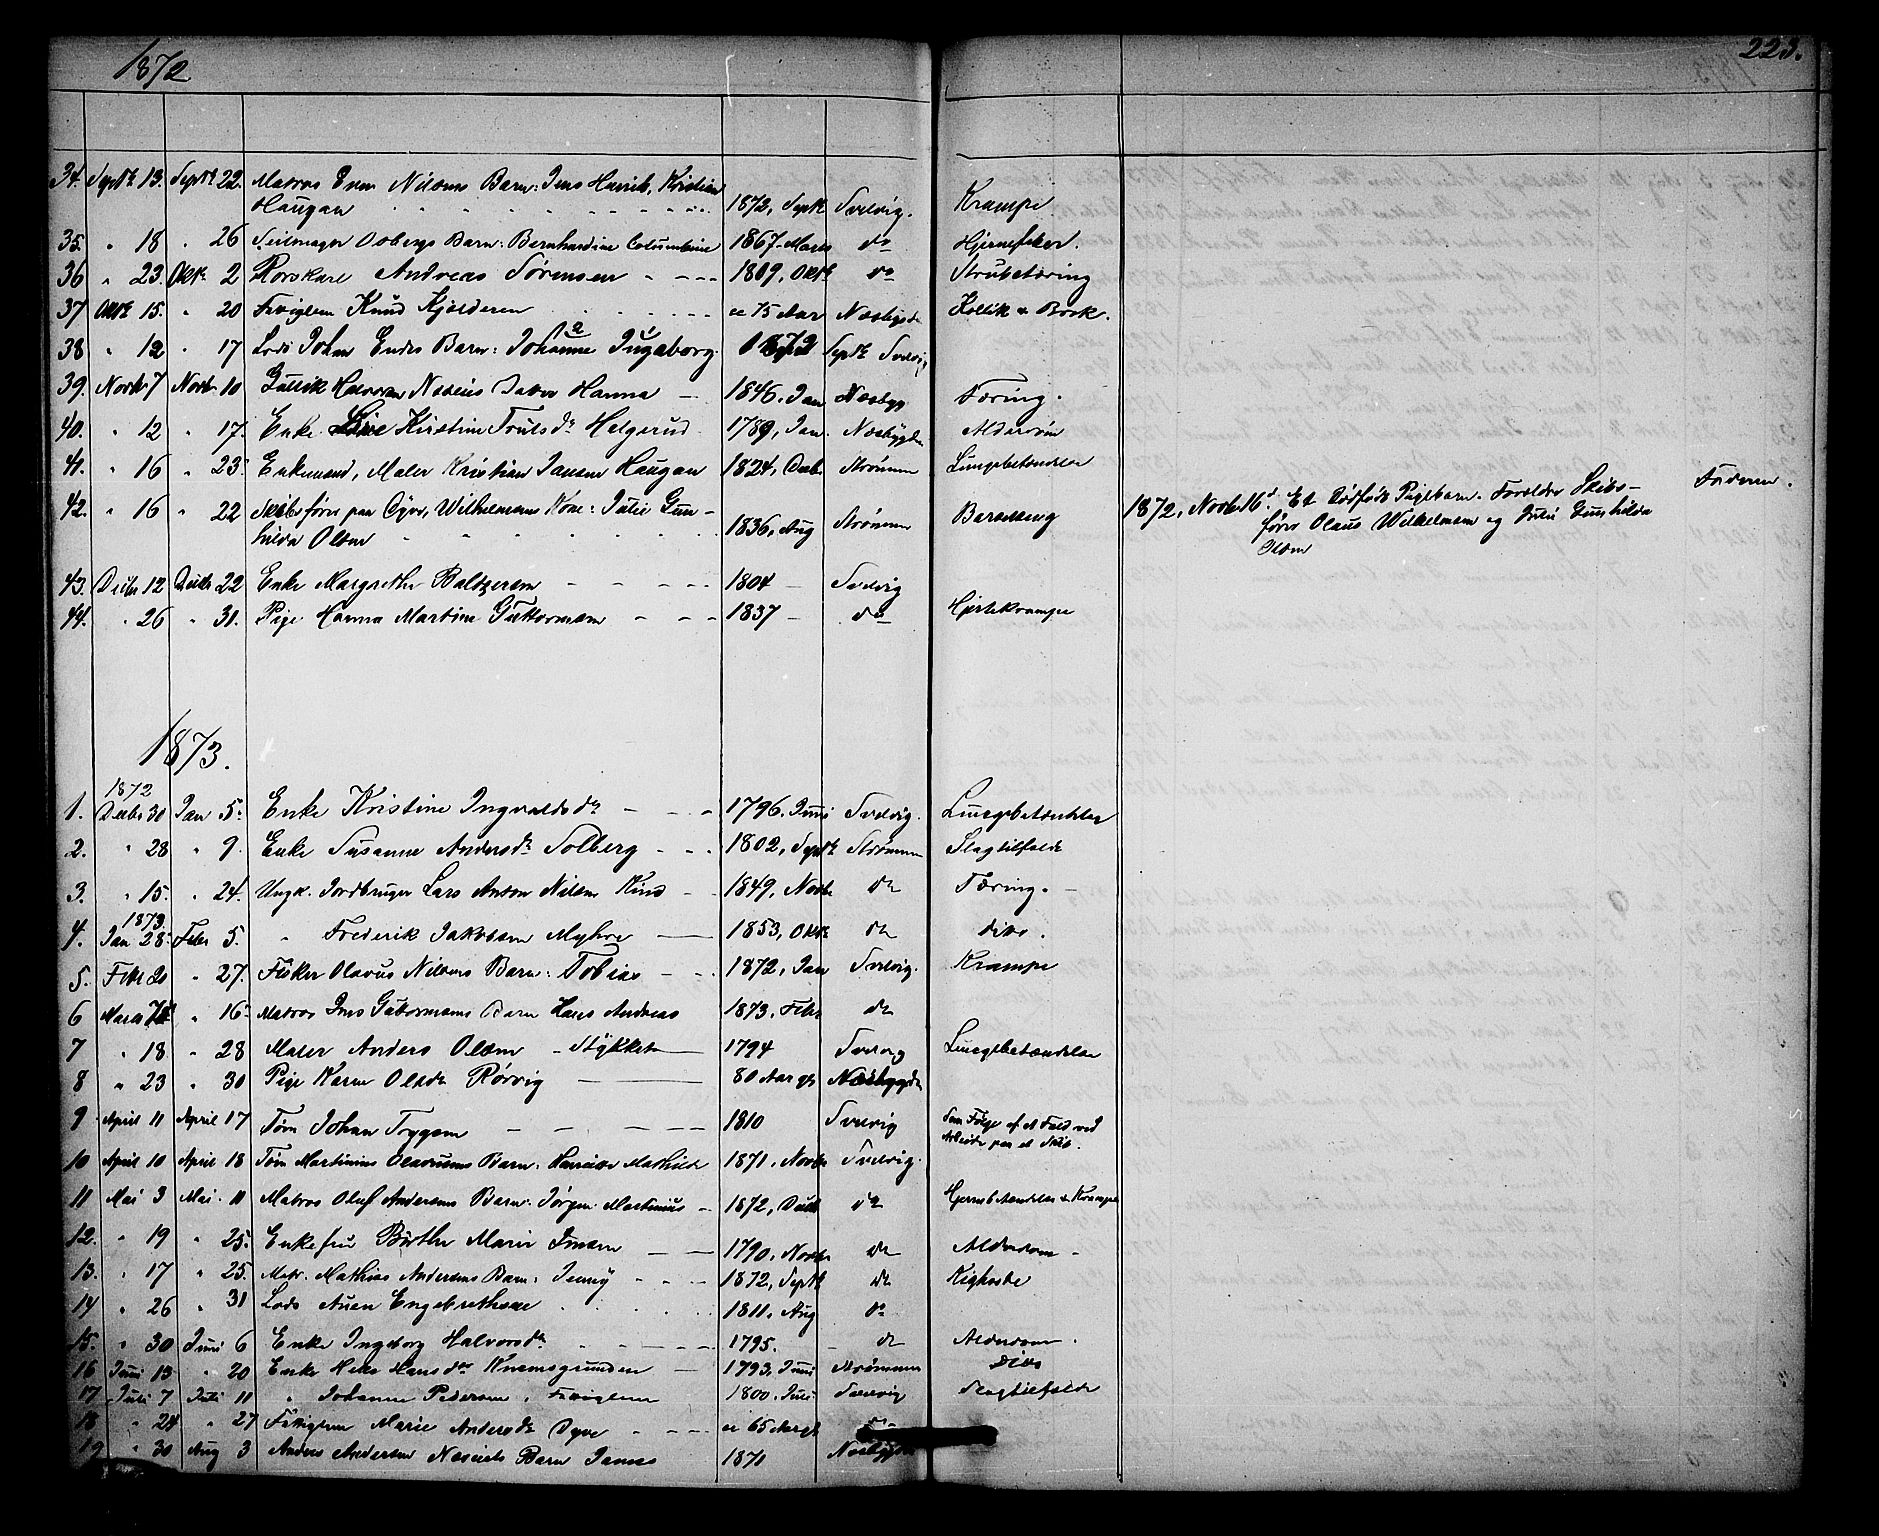 1872
223.
34. Septr 13. Septr 22. Matros Even Nilsens Barn: Jens Henrik, Kristian
Haugan 1872, Septr Svelvig. Krampe.
35. " 18 " 26 Seilmager Osbergs Barn: Bernhardine Columbine 1867 Marts do Hjernefeber.
36 " 23. Oktr 2 Andreas Sørensen 1809, Oktr do Strubetæring
37 Oktr 15. " 20 Fattiglem Knud Kjolderen ce 75 Aar Næsbygden Kollik & Brok.
38 " 12 " 17 Lods Johan Barn: Johanne Ingeborg. 1872 Septr Svelvig
39. Novbr 7 Novbr 10 Gullik Halvorsen Næseies Datter Hanna 1846, Jan Næsbyg Tæring.
40. " 12 " 17. Enke Kirstine Trulsdr Helgerud 1789, Jan. Næsbygden Alderdom
41. " 16 " 23. Enkemand, Maler Kristian Jansen Haugan 1824, Decbr Strømmen Lungebetændelse
42. " 16 " 22 Skibsfører paa Wilhelmsens Kone: Julie Gun-
hilda Olsen 1836, Aug Strømmen Barselseng
1872, Novbr 16d. Et dødfødt Pigebarn. Forældre Skibs-
fører Olaus Wilhelmsen og Julie Gunhilda
Olsen
Faderen.
43. Decbr 12 Decbr 22 Enke Margrethe Baltzersen 1804 Svelvig
44. " 26 " 31. Pige Hanna Martine Guttormsen 1837 do Hjertekrampe
1873.
1872
1. Decbr 30 Jan 5. Enke Kristine Ingvaldsdr 1796, Juni Svelvig. Lungebetændelse
2. " 28 " 9. Enke Susanne Andersdr Solberg 1802, Septr Strømmen Slagtilfælde
3. " 15. " 24. Ungk. Jordbruger Lars Anton Nilsen 1849, Novbr do Tæring.
1873
4. Jan 28. Febr 5. " Frederik Jakobsen Myhre 1853, Oktr do dito.
5. Febr 20 " 27. Fisker Olavus Nilsens Barn: Tobias 1872, Jan Svelvig. Krampe
6 Marts " 16. Matros Jens Guttormsens Barn Hans Andreas 1873. Febr do
7 " 18 " 28 Maler Anders Olsen Stykket 1794 Svelvig Lungebetændelse
8 " 23 " 30 Pige Karen Olsdr Rørvig 80 Aar gl Næsbygden
9 April 11 April 17 Tøm Johan Trygsen 1810 Svelvig Som Følge af et Fald ved
Arbeide paa et Skib.
10 April 10 April 18 Tøm Martinius Olavesens Barn: Mathilde 1871. Novbr Svelvig.
11 Mai 3 Mai 11 Matros Oluf Andersens Barn: Jørgen Martinius 1872, Decbr do Hjernebetændelse & Krampe
12. " 19 " 25. Enkefru Birthe Marie 1790, Novbr do Alderdom
13. " 17 " 25. Matr. Mathias Andersens Barn: Jenny 1872, Septr do Kighoste
14 " 26 " 31 Lods Aven Engebrethsen 1811. Aug do
15. " 30 Juni 6 Enke Ingeborg Halvorsdr 1795. do Alderdom.
16 Juni 13 " 20 Enke Hansdr 1793, Juni Strømmen Dito
17 Juli 7 Juli 11 " Johanne Pedersen, Fattiglem 1800. Juli Svelvig Slagtilfælde
18 " 24 " 27 Fattiglem Marie Andersdr Dyve ce 65 Aar gl do
19 " 30 Aug 3 Anders Andersen Næseiets Barn James 1871 Næsbygden